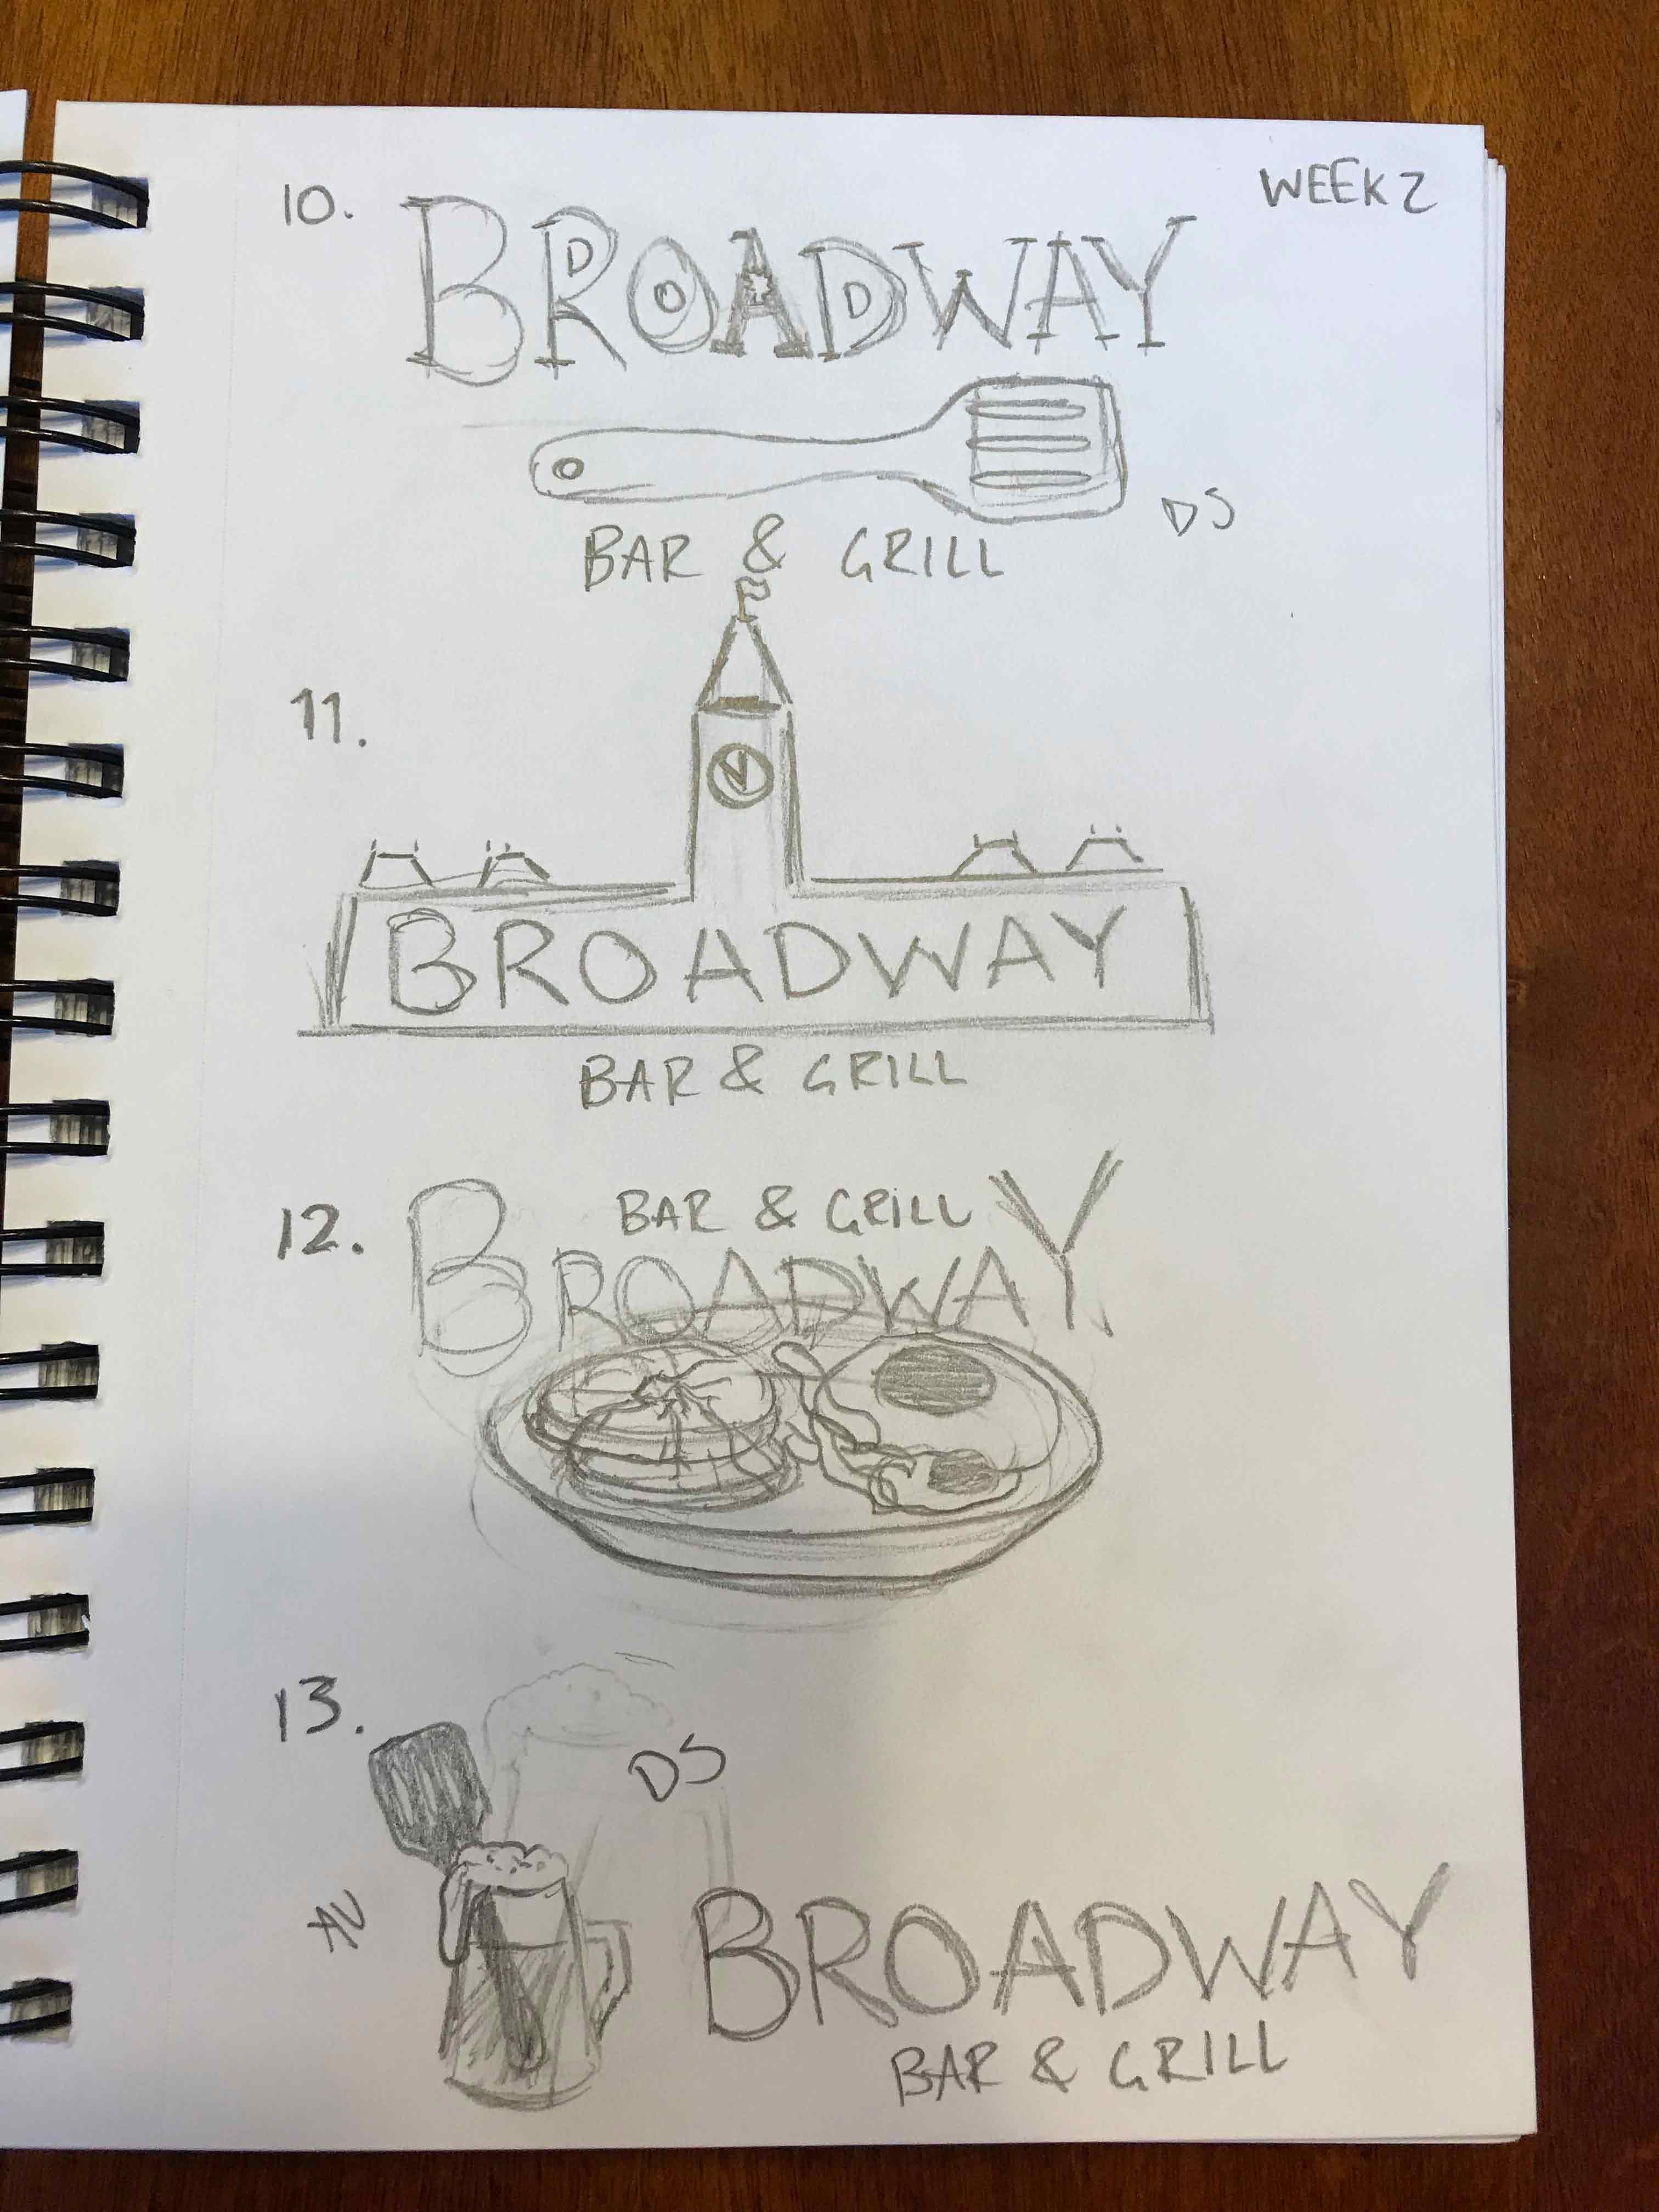 WEEK 2
10.
BROADWAY
DS
BAR & GRILL
11.
BROADWAY
BAR & GRILL
12.
BAR & GRILL
BROADWAY
13.
DS
BROADWAY
BAR & GRILL